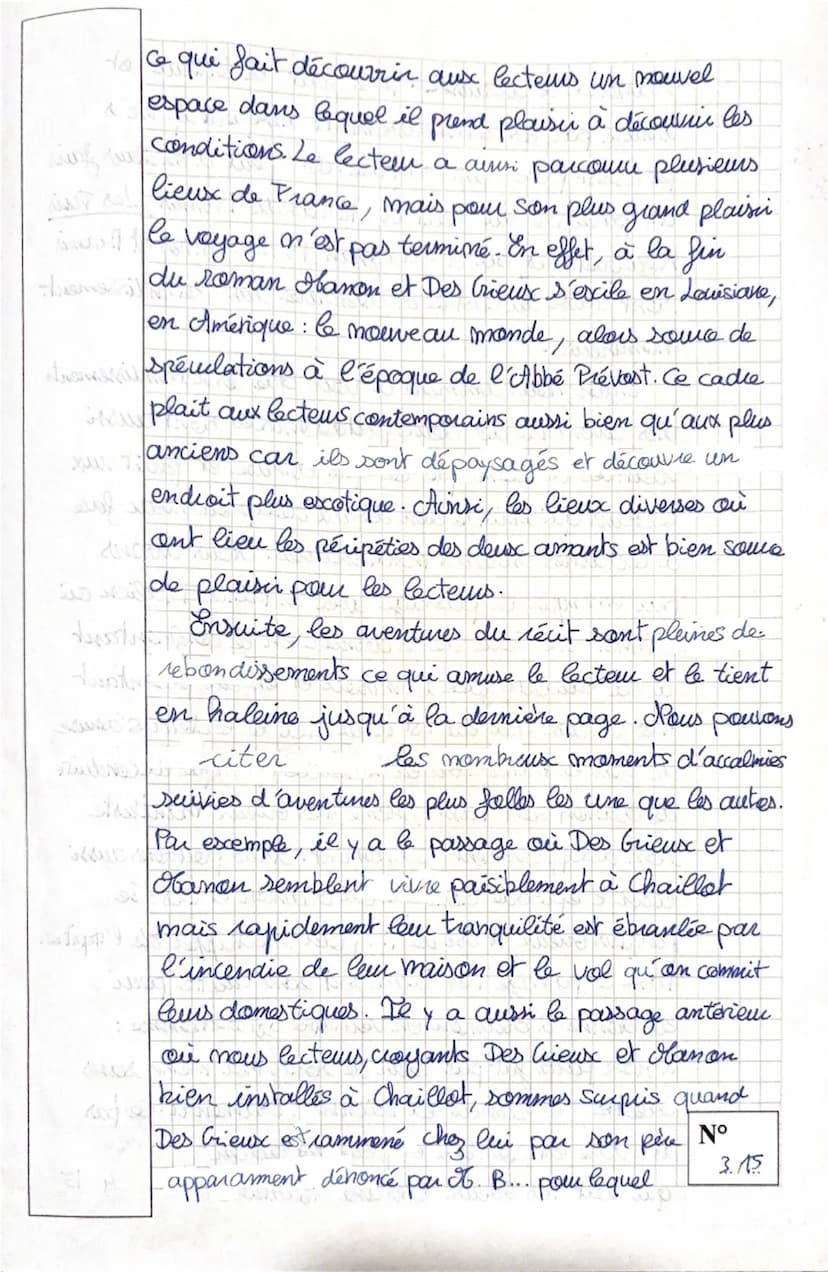 ce qui fait découvrir aux lecteurs un nouvel
espace dans lequel il prend plaisir à découvrir les
conditions. Le lecteur a ainsi parcouru plusieurs
lieux de France, mais pour son plus grand plaisir
le voyage n'est pas terminé. En effet, à la fin
du roman Manon et Des Grieux s'exile en Louisiane,
en Amérique : le nouveau monde, alors source de
spéculations à l'époque de l'Abbé Prévost. Ce cadre
plait aux lecteurs contemporains aussi bien qu'aux plus
anciens car ils sont dépaysagés et découvre un
endroit plus exotique. Ainsi, les lieux diverses où
ont lieu les péripéties des deux amants est bien source
de plaisir pour les lecteurs.
Ensuite, les aventures du récit sont pleines de
rebondissements ce qui amuse le lecteur et le tient
en haleine jusqu'à la dernière page. Nous pouvons
citer les nombreux moments d'accalmies
suivies d'aventures les plus folles les une que les autres.
Par exemple, il y a le passage où Des Grieux et
Manon semblent vivre paisiblement à Chaillot
mais rapidement leur tranquilité est ébranlée par
l'incendie de leur maison et le vol qu'on commit
leurs domestiques. Il y a aussi le passage antérieur
où nous lecteurs, croyants Des Grieux et Manon
bien installés à Chaillot, sommes surpris quand
Des Grieux est rammené chez lui par son père
apparamment dénoncé par M. B... pour lequel
N°
3.15